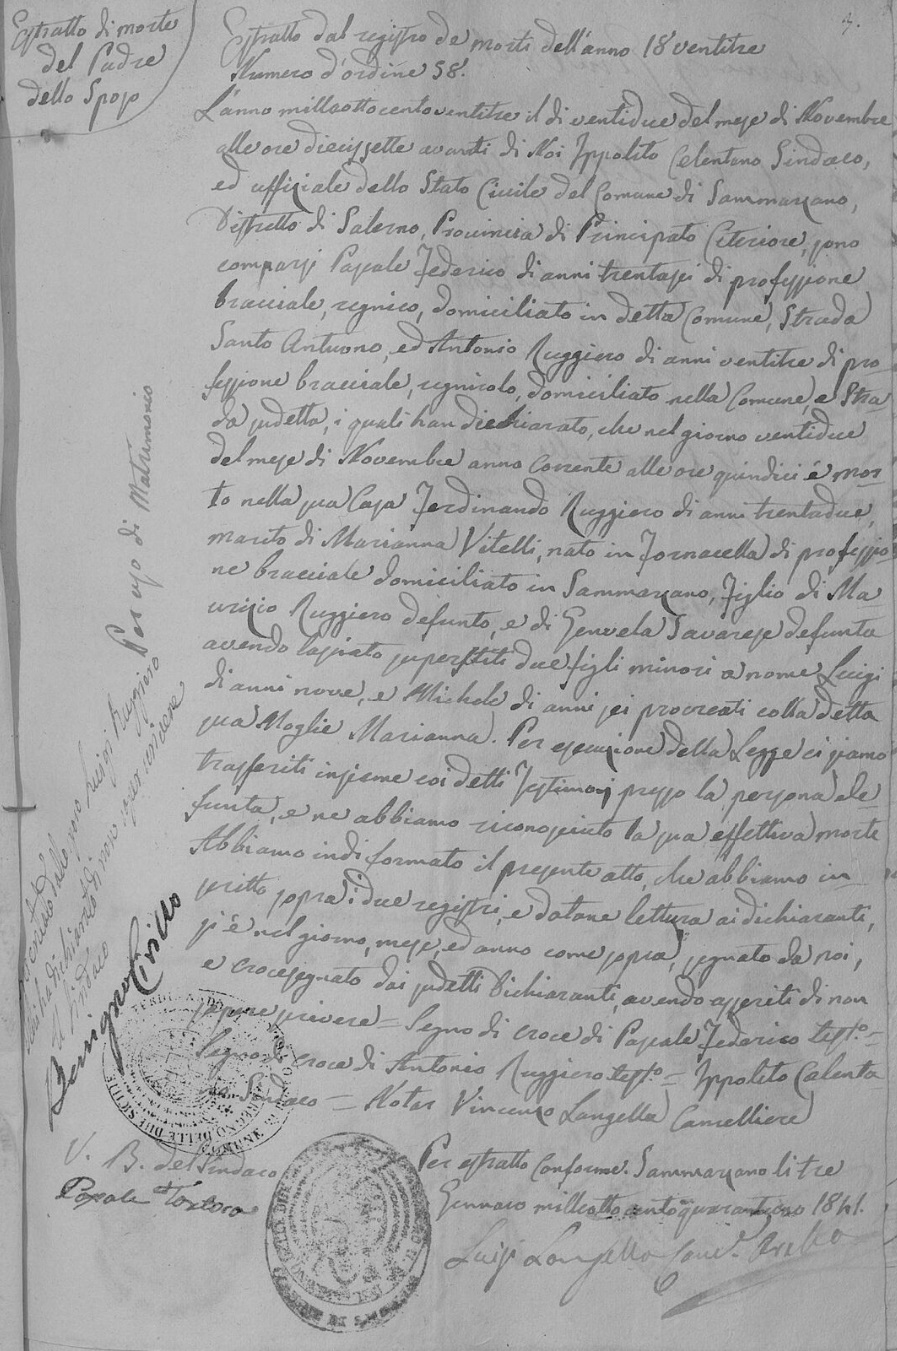 Estratto di morte
del Padre
dello Sposo
Estratto dal registro de morti dell'anno 18 ventitre
Numero d'ordine 58.
L'anno milleottocentoventitre il di ventidue del mese di Novembre
alle ore diecissette avanti di Noi Ippolito Celentano Sindaco,
ed uffiziale dello Stato Civile del Comune di Sammarzano,
Distretto di Salerno, Provincia di Principato Citeriore, sono
comparsi Pasquale Federico di anni trentasei di professione
bracciale, regnico, domiciliato in detta Comune, Strada
Santo Antuono, ed Antonio Ruggiero di anni ventitre di pro
fessione bracciale, regnicolo, domiciliato nella Comune, e Stra-
da sudetta, i quali han dichiarato, che nel giorno ventidue
del mese di Novembre anno corrente alle ore quindici è mor-
to nella sua Casa Ferdinando Ruggiero di anni trentadue,
marito di Marianna Vitelli, nato in Fornacella di professio-
ne bracciale domiciliato in Sammarzano, Figlio di Ma-
urizio Ruggiero defunto, e di Genvela Savarese defunta
avendo lasciato superstiti due figli minori a nome Luigi
di anni nove, e Michele di anni sei procreati colla detta
sua Moglie Marianna. Per esecuzione della Legge ci siamo
trasferiti insieme coi detti Testimonj presso la persona de-
funta, e ne abbiamo riconosciuto la sua effettiva morte
Abbiamo indi formato il presente atto, che abbiamo in-
scritto sopra i due registri, e datane lettura ai dichiaranti,
si è nel giorno, mese, ed anno come sopra, segnato da noi,
e crocesegnato dai sudetti Dichiaranti, avendo asseriti di non
sapere scrivere = Segno di croce di Pasquale Federico testo. =
Segno di croce di Antonio Ruggiero testo. = Ippolito Celenta
no Sindaco = Notar Vincenzo Langella Cancelliere
Per estratto Conforme. Sammarzano li tre
Gennaro milleottocentoquarantuno 1841.
Luigi Langella Canc.
V. B. del Sindaco
Per uso di Matrimonio
Luigi Ruggiero
Il Sindaco
Benigno Cirillo